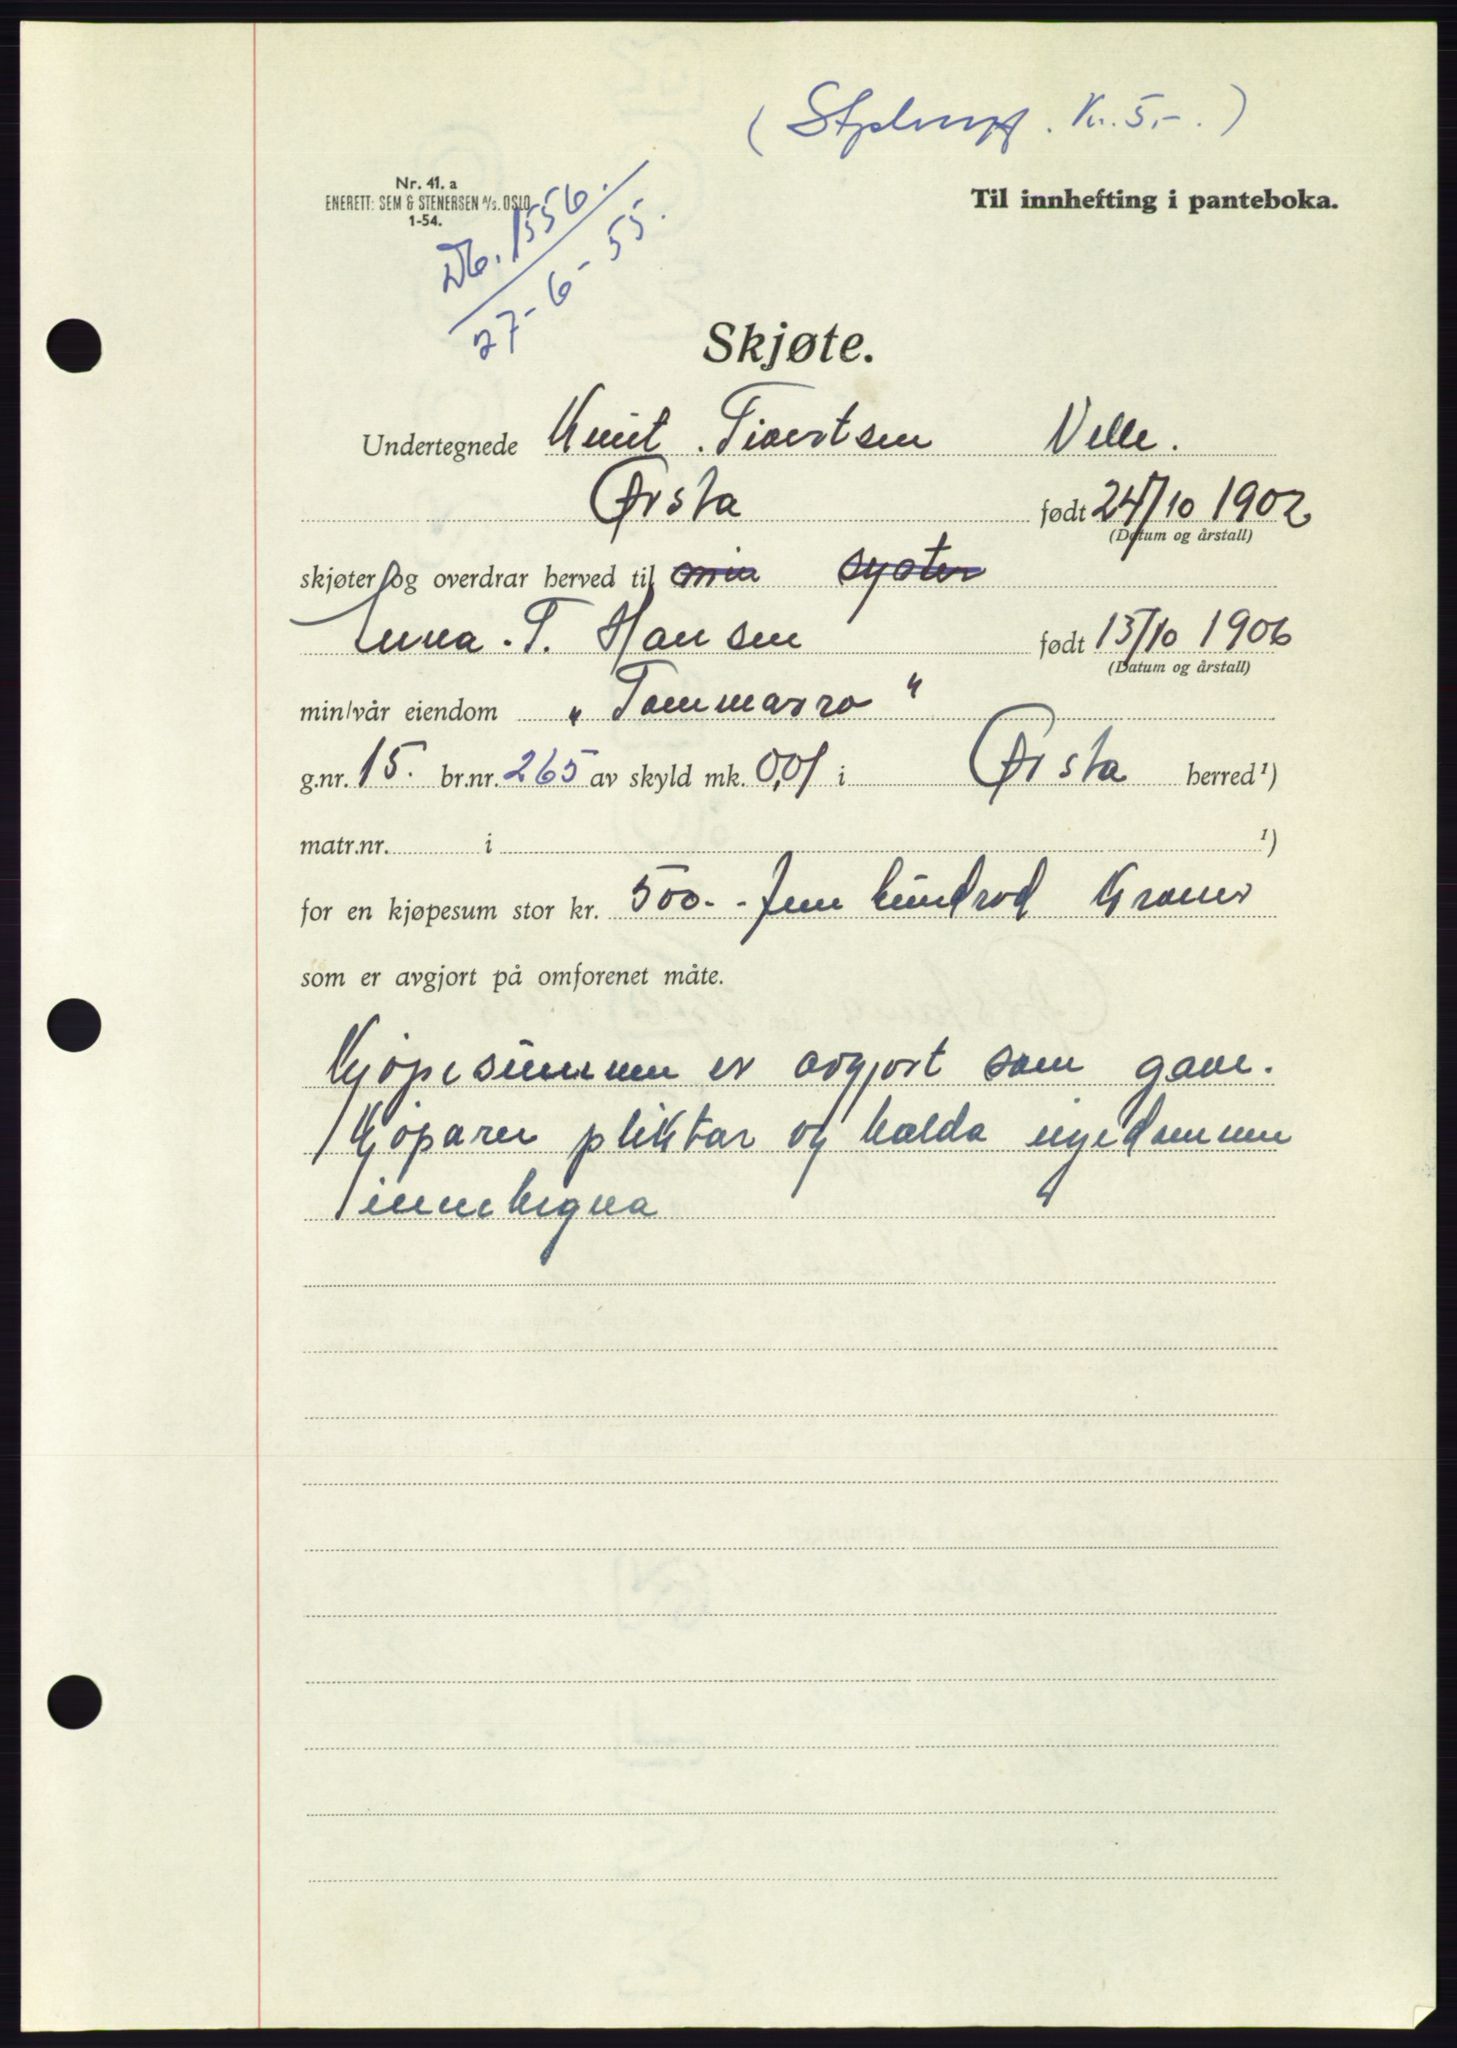 ( Stplavg. Kr. 5,- . )
Nr. 41. a
ENERETT: SEM & STENERSEN A/S. OSLO
1-54.
Til innhefting i panteboka.
Db. 1556.
27-6-55.
Skjøte.
Undertegnede Knut . Sivertsen Velle.
Ørsta født 24/10 1902
(Datum og årstall)
skjøter og overdrar herved til min syster
Anna . T. Hansen født 15/10 1906
(Datum og årstall)
min/vår eiendom „ Tommasro "
g.nr. 15. br.nr. 265 av skyld mk. 0,01 i Ørsta herred¹)
matr.nr. i ¹)
for en kjøpesum stor kr. 500.- - fem hundrod Kroner
som er avgjort på omforenet måte.
Kjøpesummen er avgjort som gave.
Kjøparen pliktar og halda eigedommen
innehegna